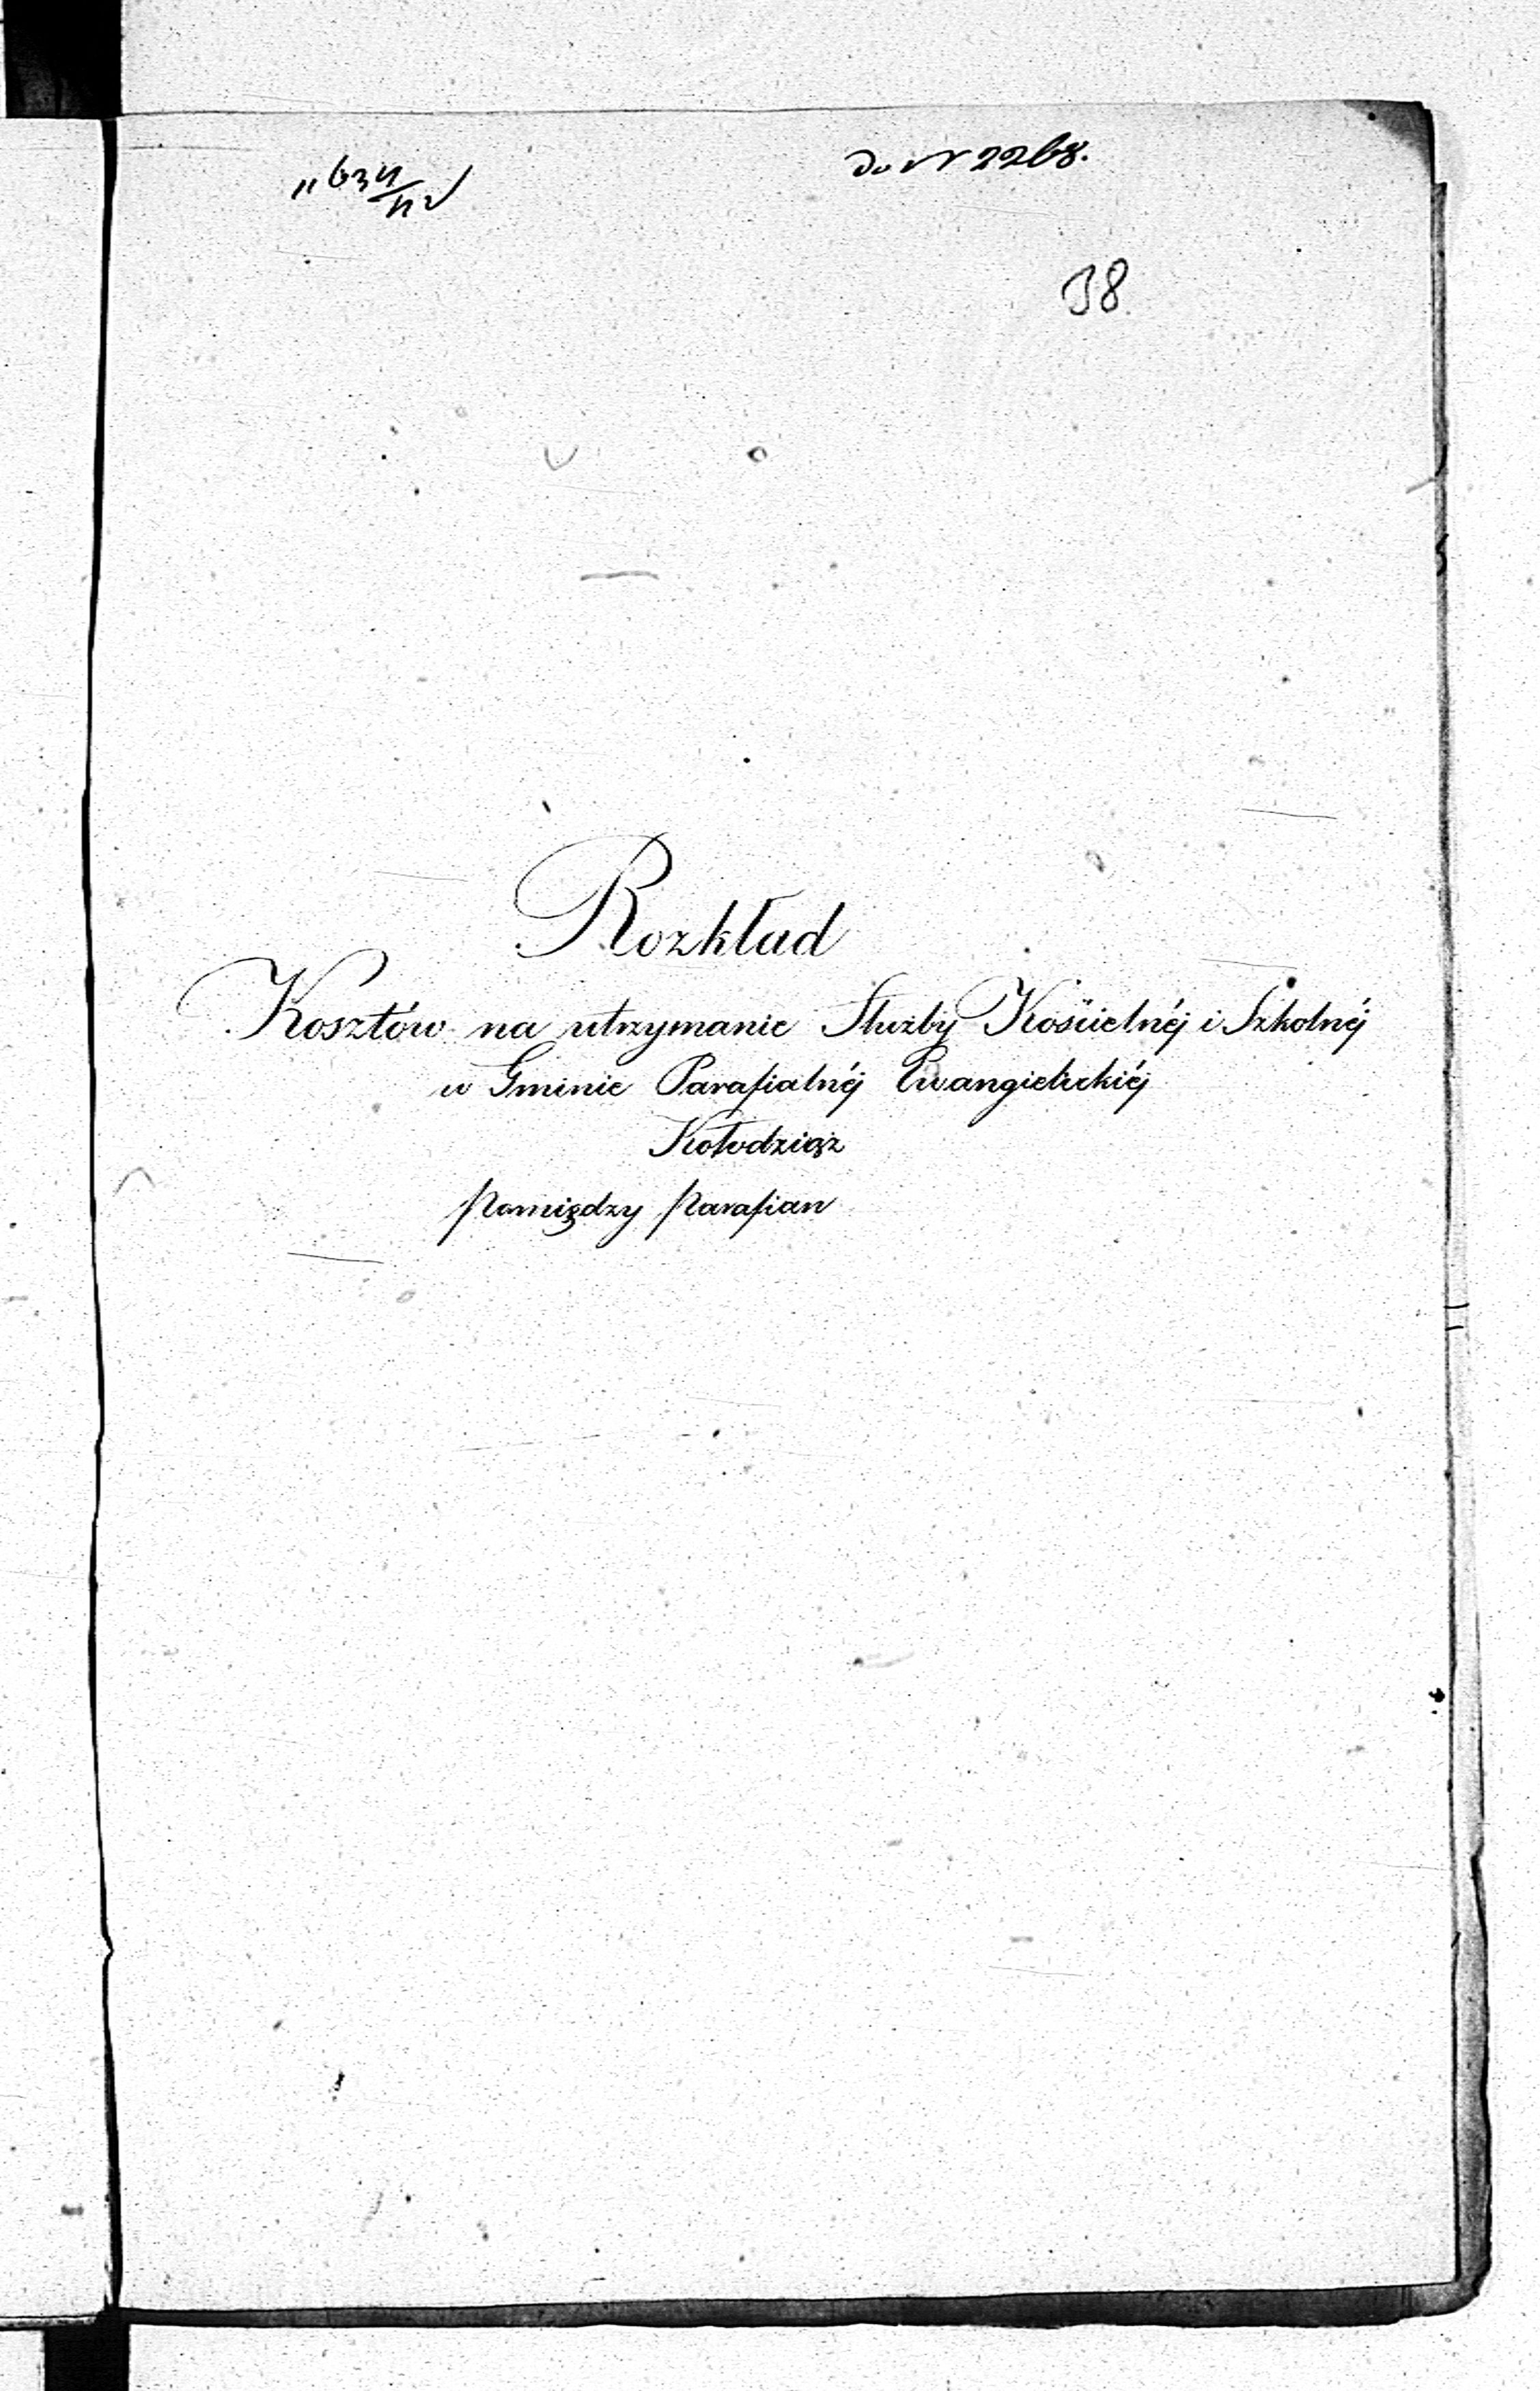 do N 2268.
38
Rozkład
Kosztów na utrzymanie Służby Kościelnéj i Szkolnéj
w Gminie Parafialnéj Ewangielickiéj
Kołodziąż
Pomiędzy Parafian